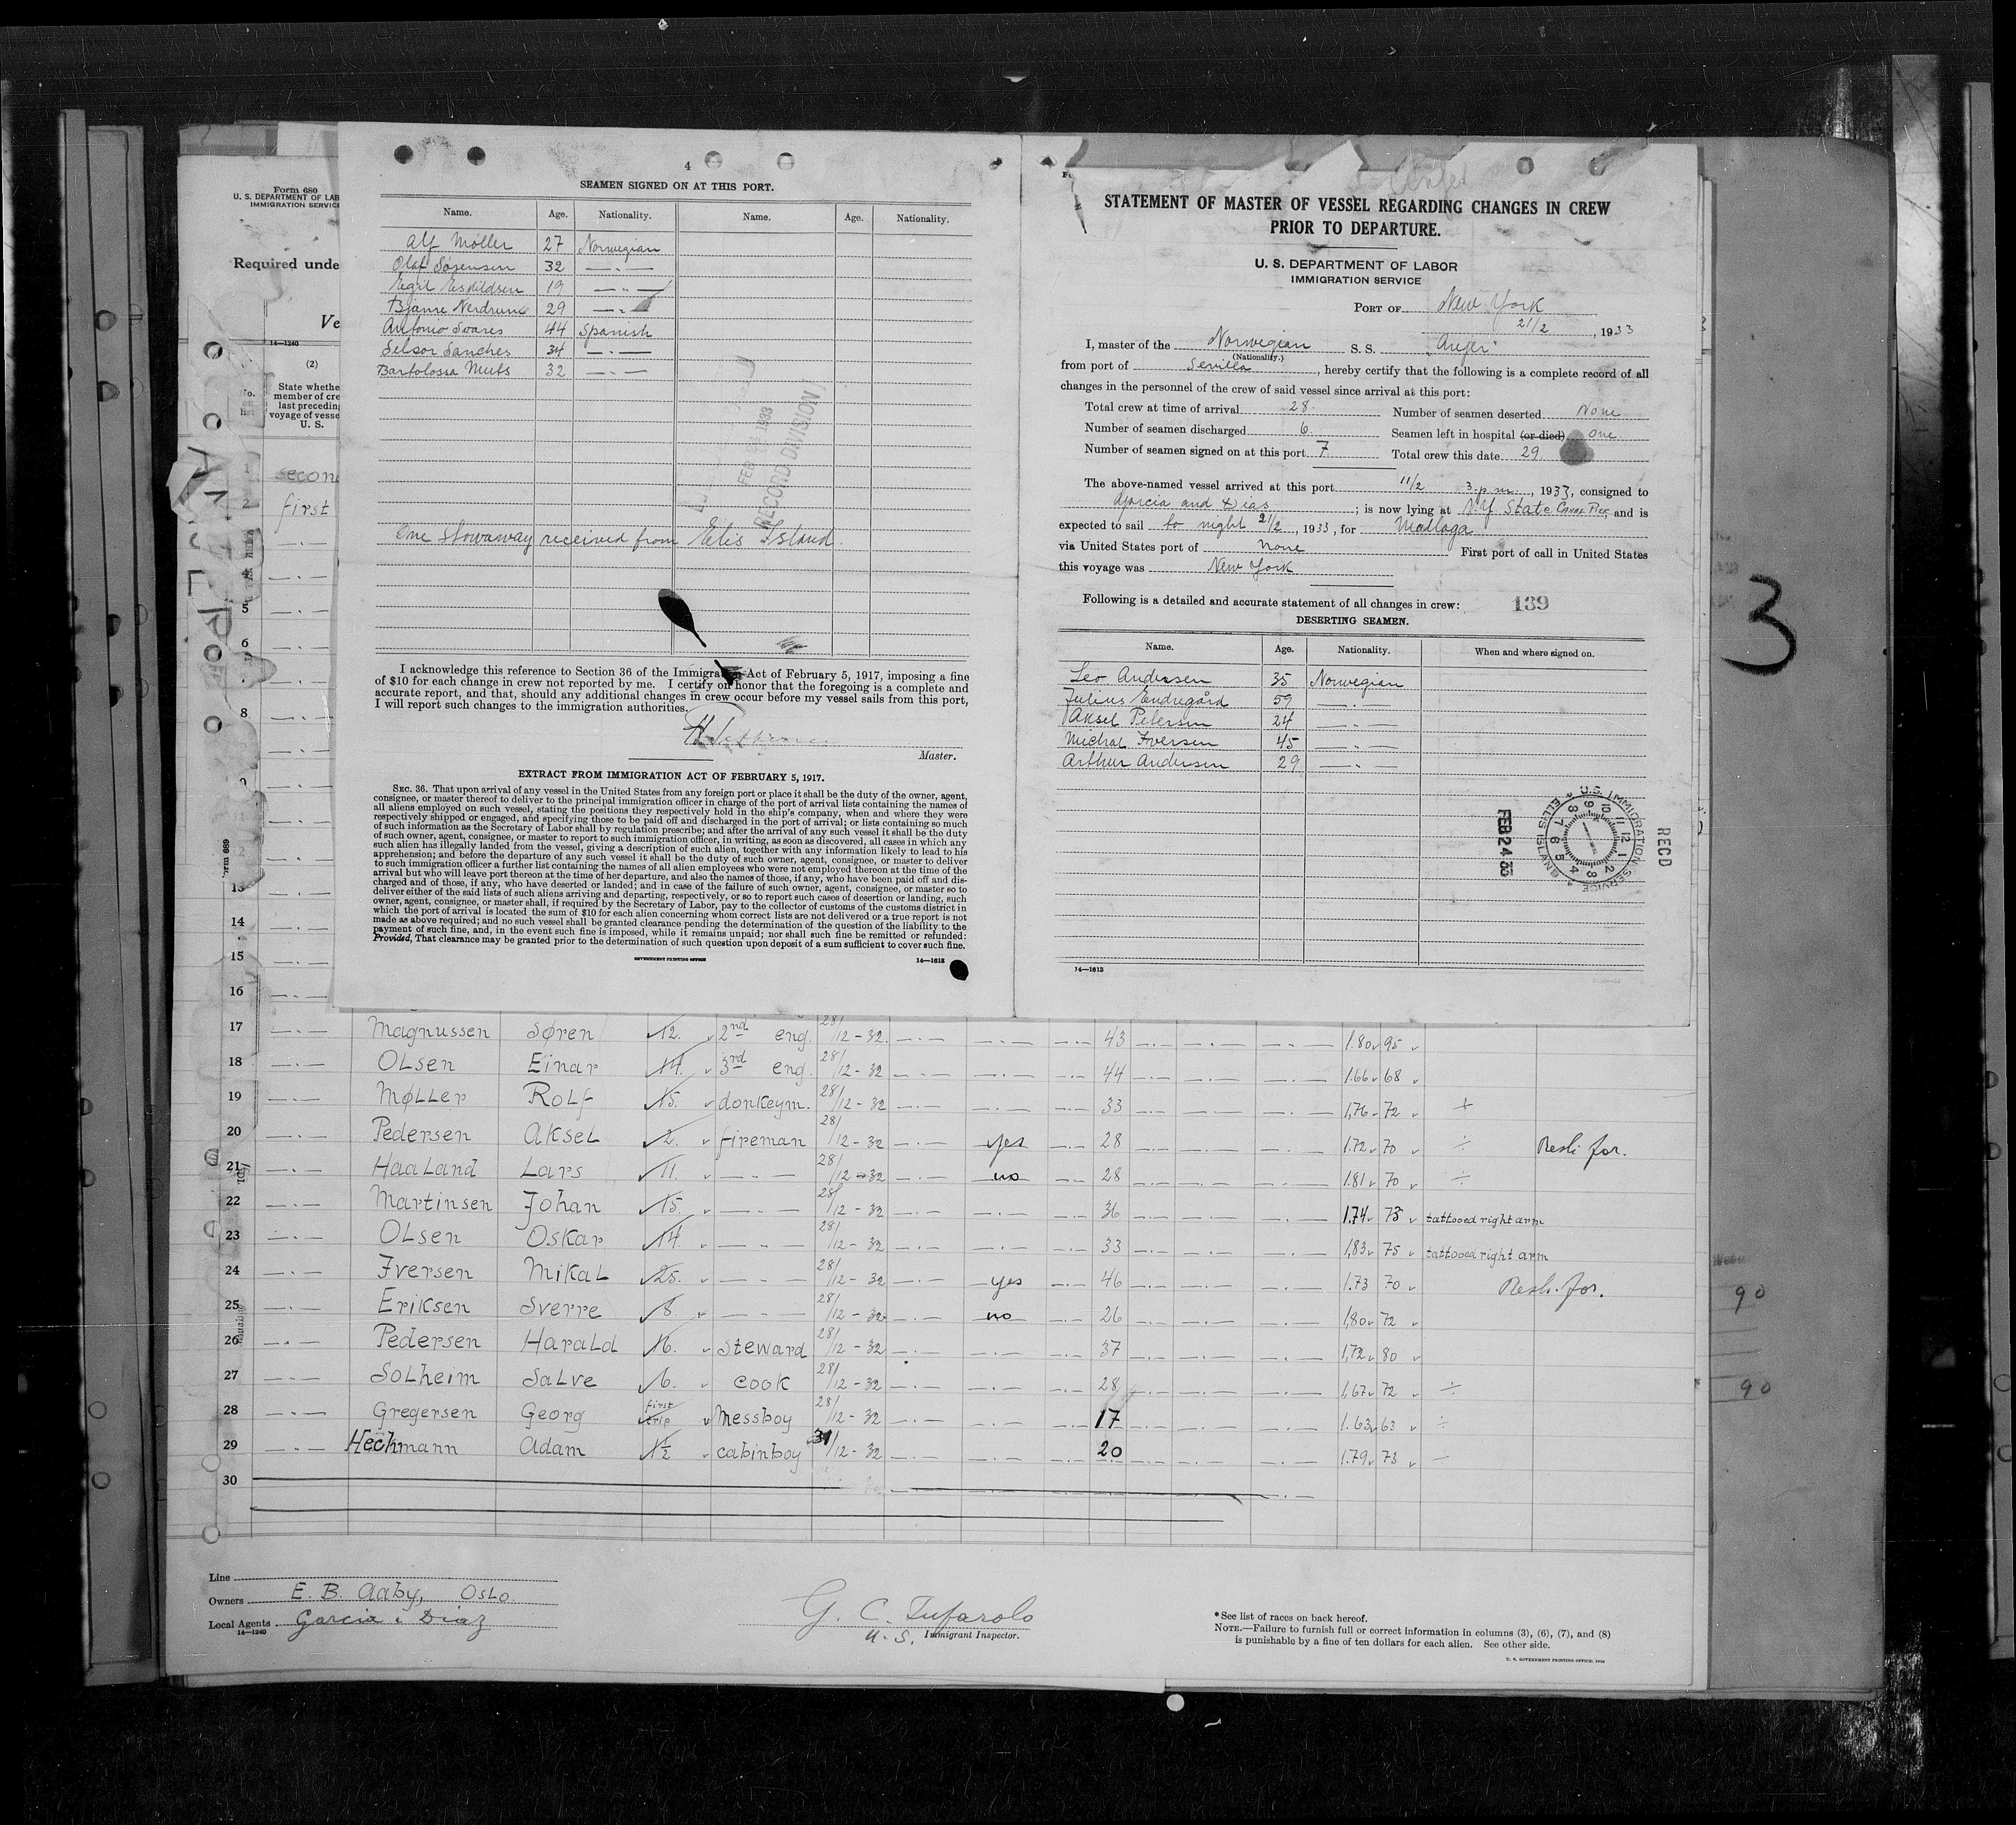 Form 680
U. S. DEPARTMENT OF LAB
IMMIGRATION SERVICE
Required unde
Ve
14—1240
(2)
State whethe
member of cre
last preceding
voyage of vesse
U. S.
second
first
4
SEAMEN SIGNED ON AT THIS PORT.
Name. Age. Nationality. Name. Age. Nationality.
Alf Møller 27 Norwegian
Olaf Sørensen 32 —..—
Egil Eskildsen 19 —..—
Bjarne Nerdrum 29 —..—
Antonio Soares 44 Spanish
Selsor Sanches 34 —..—
Bartolossa Muts 32 —..—
FEB 1933
RECORD DIVISION
One Stowaway received from Elis Island.
I acknowledge this reference to Section 36 of the Immigration Act of February 5, 1917, imposing a fine
of $10 for each change in crew not reported by me. I certify on honor that the foregoing is a complete and
accurate report, and that, should any additional changes in crew occur before my vessel sails from this port,
I will report such changes to the immigration authorities.
Master.
EXTRACT FROM IMMIGRATION ACT OF FEBRUARY 5, 1917.
SEC. 36. That upon arrival of any vessel in the United States from any foreign port or place it shall be the duty of the owner, agent,
consignee, or master thereof to deliver to the principal immigration officer in charge of the port of arrival lists containing the names of
all aliens employed on such vessel, stating the positions they respectively hold in the ship's company, when and where they were
respectively shipped or engaged, and specifying those to be paid off and discharged in the port of arrival; or lists containing so much
of such information as the Secretary of Labor shall by regulation prescribe; and after the arrival of any such vessel it shall be the duty
of such owner, agent, consignee, or master to report to such immigration officer, in writing, as soon as discovered, all cases in which any
such alien has illegally landed from the vessel, giving a description of such alien, together with any information likely to lead to his
apprehension; and before the departure of any such vessel it shall be the duty of such owner, agent, consignee, or master to deliver
to such immigration officer a further list containing the names of all alien employees who were not employed thereon at the time of the
arrival but who will leave port thereon at the time of her departure, and also the names of those, if any, who have been paid off and dis-
charged and of those, if any, who have deserted or landed; and in case of the failure of such owner, agent, consignee, or master so to
deliver either of the said lists of such aliens arriving and departing, respectively, or so to report such cases of desertion or landing, such
owner, agent, consignee, or master shall, if required by the Secretary of Labor, pay to the collector of customs of the customs district in
which the port of arrival is located the sum of $10 for each alien concerning whom correct lists are not delivered or a true report is not
made as above required; and no such vessel shall be granted clearance pending the determination of the question of the liability to the
payment of such fine, and, in the event such fine is imposed, while it remains unpaid; nor shall such fine be remitted or refunded:
Provided, That clearance may be granted prior to the determination of such question upon deposit of a sum sufficient to cover such fine.
GOVERNMENT PRINTING OFFICE 14—1613
STATEMENT OF MASTER OF VESSEL REGARDING CHANGES IN CREW
PRIOR TO DEPARTURE.
U. S. DEPARTMENT OF LABOR
IMMIGRATION SERVICE
PORT OF New York
21/2, 1933
I, master of the Norwegian S. S. "Anfer"
(Nationality.)
from port of Sevilla, hereby certify that the following is a complete record of all
changes in the personnel of the crew of said vessel since arrival at this port:
Total crew at time of arrival 28. Number of seamen deserted None
Number of seamen discharged 6. Seamen left in hospital (or died) One
Number of seamen signed on at this port 7. Total crew this date 29.
The above-named vessel arrived at this port 11/2 3 p.m., 1933, consigned to
Garcia and Dias; is now lying at N.Y State Canal Pier, and is
expected to sail to night 21/2, 1933, for Mallaga
via United States port of None First port of call in United States
this voyage was New York
Following is a detailed and accurate statement of all changes in crew: 139
DESERTING SEAMEN.
Name. Age. Nationality. When and where signed on.
Leo Andersen 35 Norwegian
Julius Endregård 59 —..—
Aksel Petersen 24 —..—
Michal Iversen 45 —..—
Arthur Andersen 29 —..—
FEB 24 33
U.S. IMMIGRATION SERVICE ELLIS ISLAND
RECD
14—1613
3
5
6
8
13
14
15
16
17 —..— Magnussen Søren 12. 2nd eng. 28/12-32 43 1.80 95
18 —..— Olsen Einar 14. 3rd eng. 28/12-32 44 1.66 68
19 —..— Møller Rolf 15. donkeym. 28/12-32 33 1,76 72 +
20 —..— Pedersen Aksel 2. fireman 28/12-32 yes 28 1.72 70 ÷
21 —..— Haaland Lars 11. —..— 28/12-32 no 28 1.81 70 ÷
22 —..— Martinsen Johan 15. —..— 28/12-32 36 1.74 73 tattooed right arm
23 —..— Olsen Oskar 14. —..— 28/12-32 33 1,83 75 tattooed right arm
24 —..— Iversen Mikal 25. —..— 28/12-32 yes 46 1.73 70
25 —..— Eriksen Sverre 8. —..— 28/12-32 no 26 1,80 72
26 —..— Pedersen Harald 16. steward 28/12-32 37 1,72 80
27 —..— Solheim Salve 6. cook 28/12-32 28 1,67 72 ÷
28 —..— Gregersen Georg first trip Messboy 28/12-32 17 1.63 63 ÷
29 —..— Hechmann Adam 1½ cabinboy 31/12-32 20 1.79 73 ÷
30
90
90
Line
Owners E. B. Aaby, Oslo.
Local Agents Garcia & Diaz
14—1240
G. C. Tufarolo
U. S. Immigrant Inspector.
*See list of races on back hereof.
NOTE.—Failure to furnish full or correct information in columns (3), (6), (7), and (8)
is punishable by a fine of ten dollars for each alien. See other side.
U. S. GOVERNMENT PRINTING OFFICE: